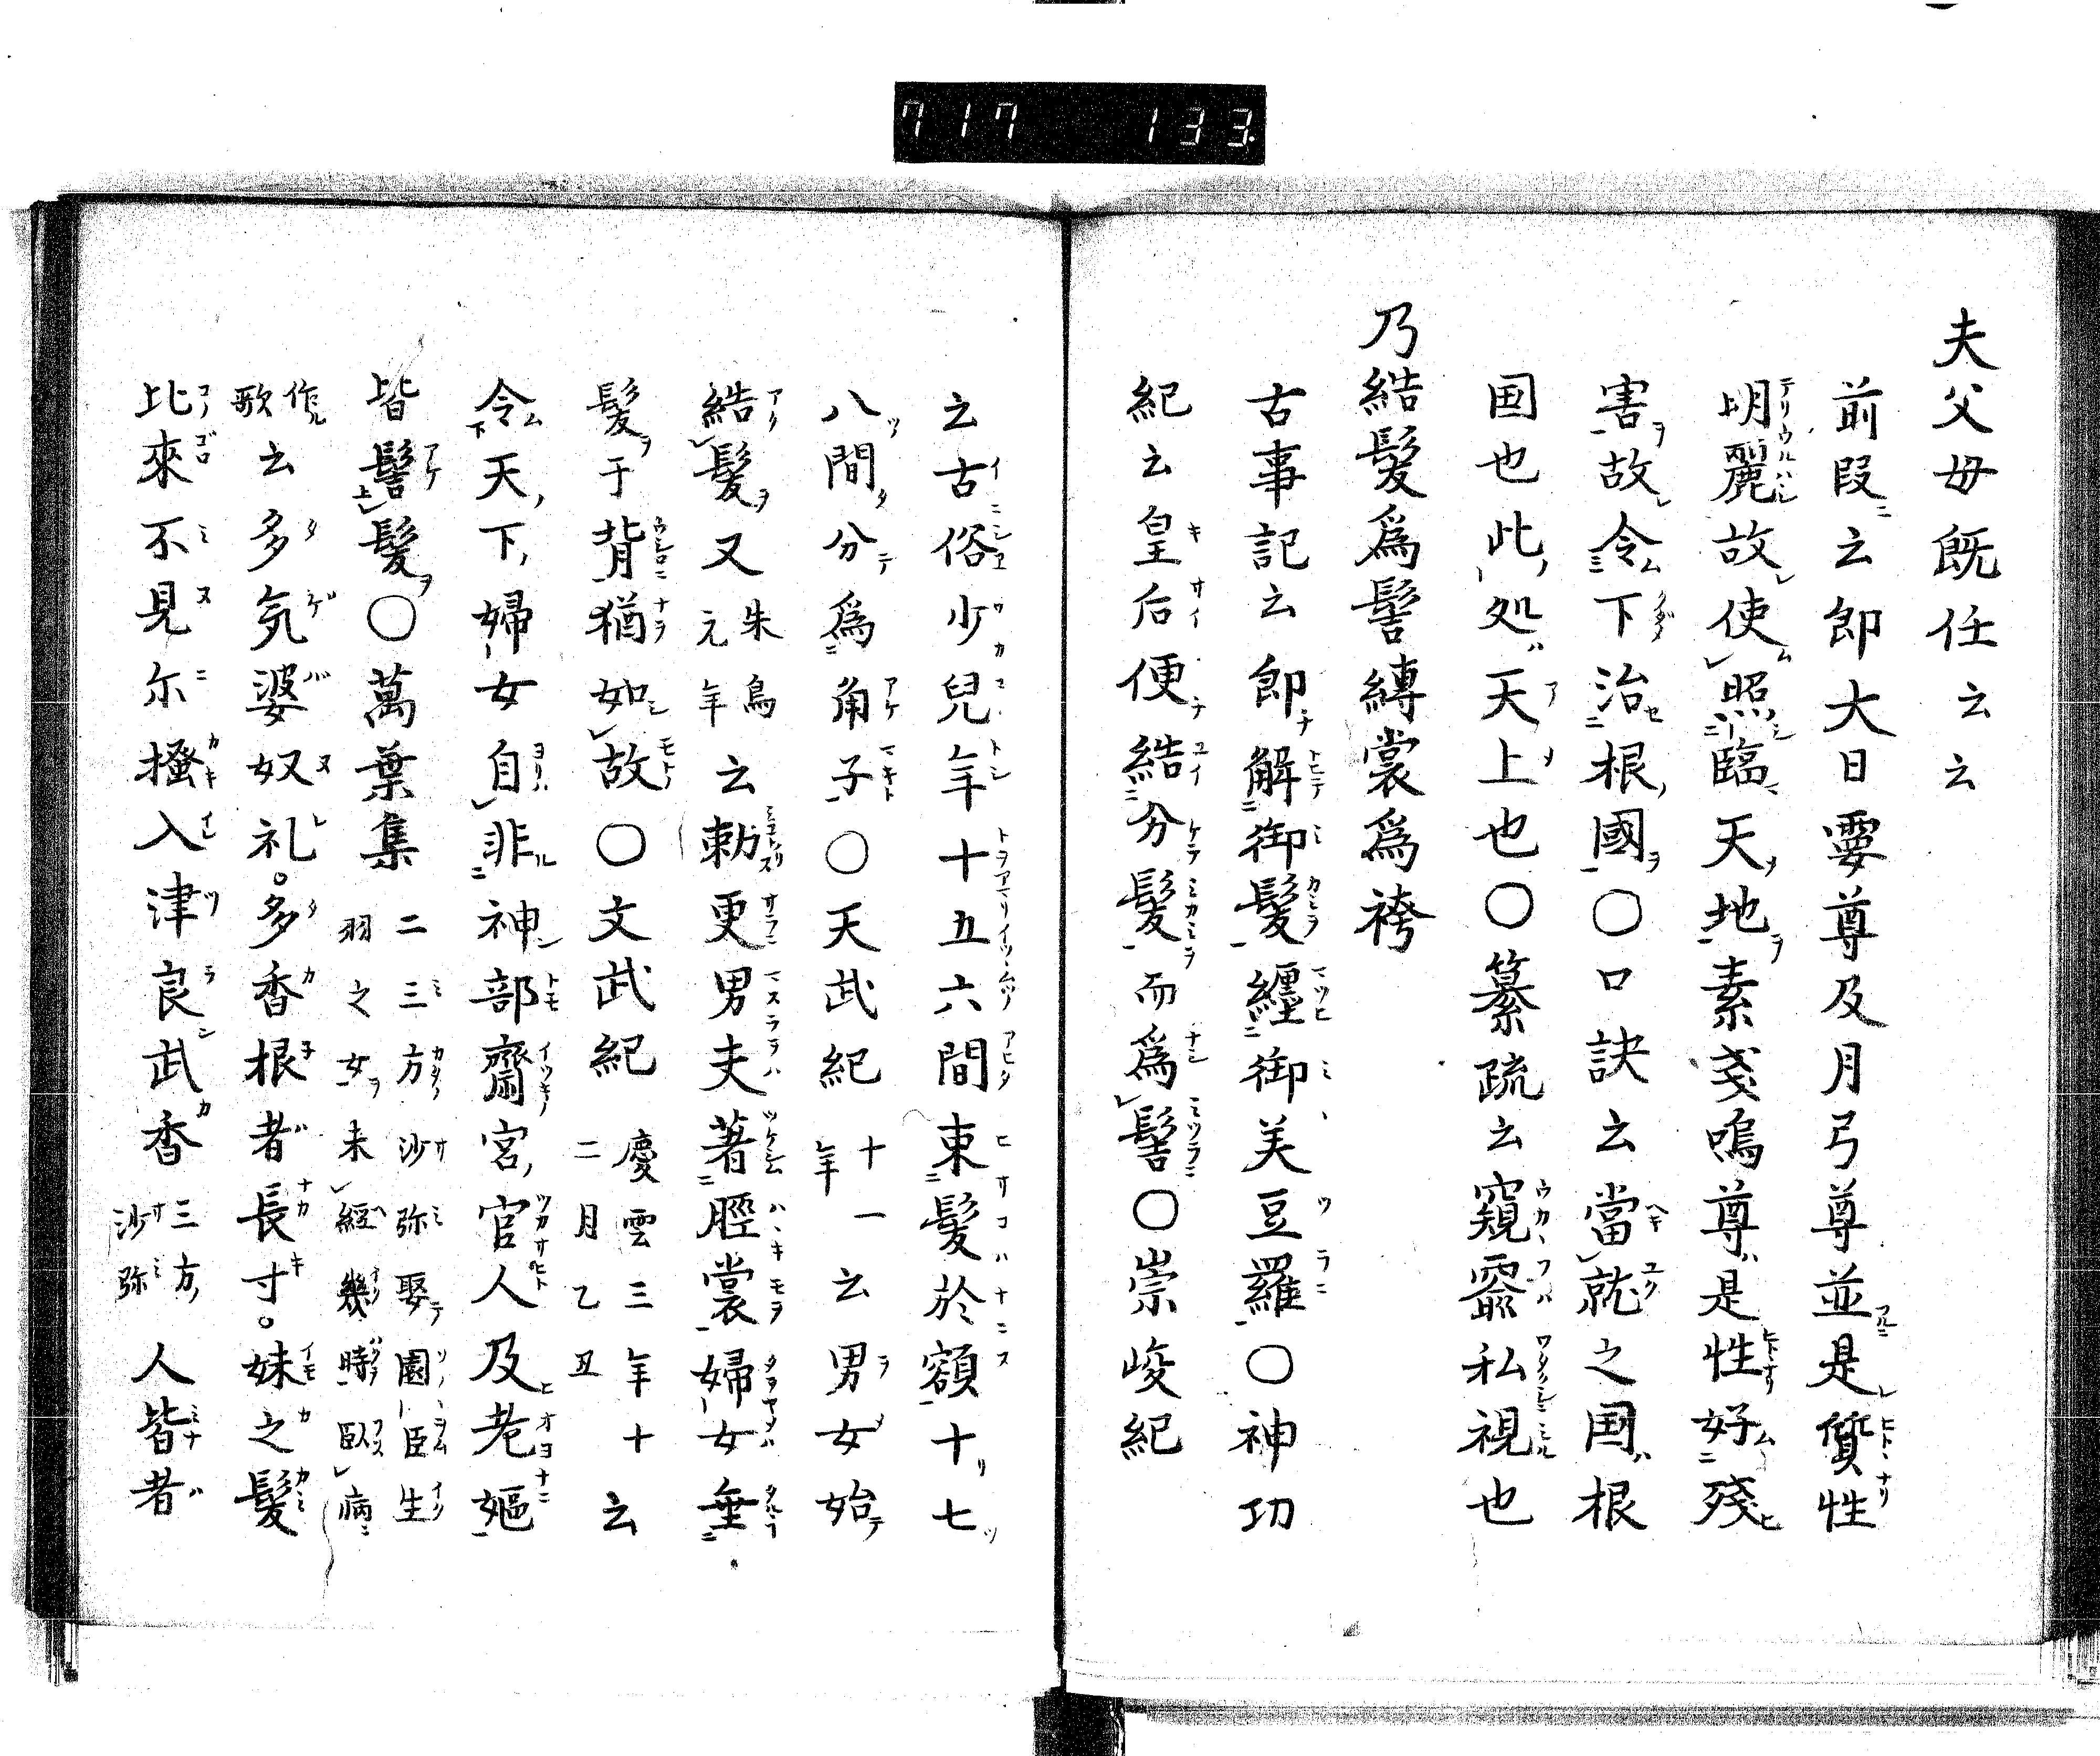 717 133
夫父母既任云云
前段云即大日孁尊及月弓尊並是質性
明麗故使照臨天地素戔嗚尊是性好殘
害故令下治根國〇口訣云當就之国根
国也此処天上也〇纂疏云窺窬私視也
乃結髪爲髻縛裳爲袴
古事記云即解御髪纒御美豆羅〇神功
紀云皇后便結分髪而爲髻〇崇峻紀
云古俗少兒年十五六間束髪於額十七
八間分爲角子〇天武紀十一年云男女始
結髪又朱鳥元年云勅更男夫著脛裳婦女垂
髪于背猶如故〇文武紀慶雲三年十二月乙丑云
令天下婦女自非神部齋宮宮人及老嫗
皆髻髪〇萬葉集二三方沙弥娶園臣生羽之女未經幾時臥病
作歌云多気婆奴礼。多香根者長寸。妹之髪
比來不見尓搔入津良武香三方沙弥人皆者